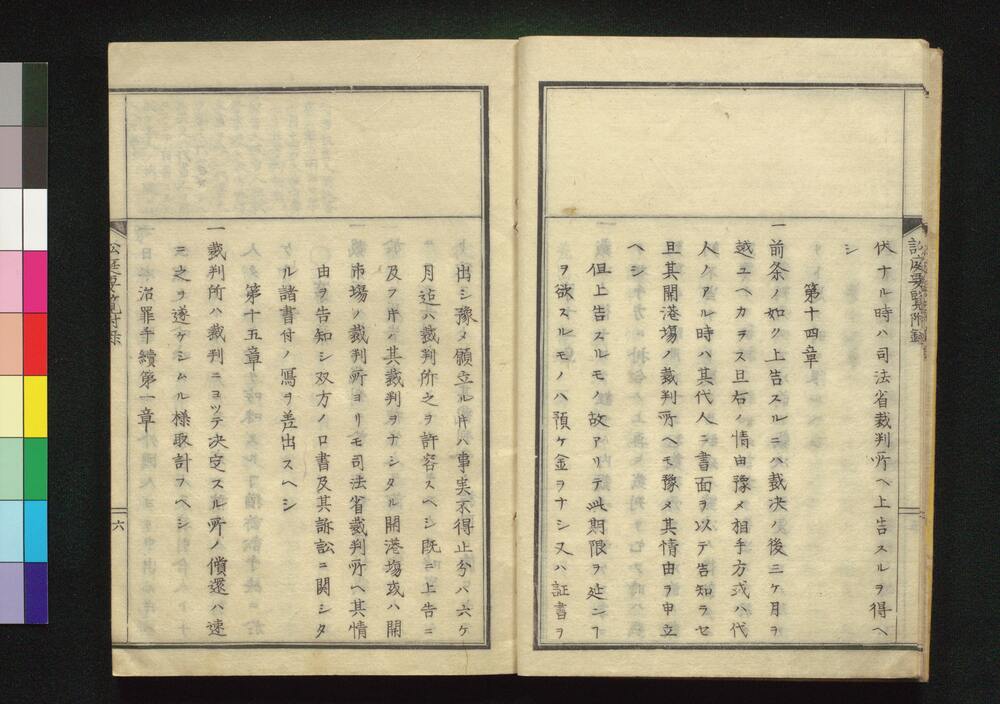 伏ナル時ハ司法省裁判所ヘ上告スルヲ得ヘ
シ
第十四章
一前条ノ如ク上告スルニハ裁决ノ後三ケ月ヲ
越ユヘカラス且右ノ情由豫メ相手方或ハ代
人ノアル時ハ其代人ニ書面ヲ以テ告知ラセ
且其開港場ノ裁判所ヘモ豫メ其情由ヲ申立
ヘシ
但上告スルモノ故アリテ此期限ヲ延ンヿ
ヲ欲スルモノハ預ケ金ヲナシ又ハ証書ヲ
出シ豫メ願立ル片ハ事実不得止分ハ六ケ
月迠ハ裁判所之ヲ許容スヘシ既ニ上告ニ
及フ片ハ其裁判ヲナシタル開港塲或ハ開
市塲ノ裁判所ヨリモ司法省裁判所ヘ其情
由ヲ告知シ双方ノ口書及其訴訟ニ関シタ
ル諸書付ノ寫ヲ差出スヘシ
第十五章
一裁判所ハ裁判ニヨツテ决定スル所ノ償還ハ速
ニ之ヲ遂ケシムル様取計フヘシ
治罪手續第一章
六